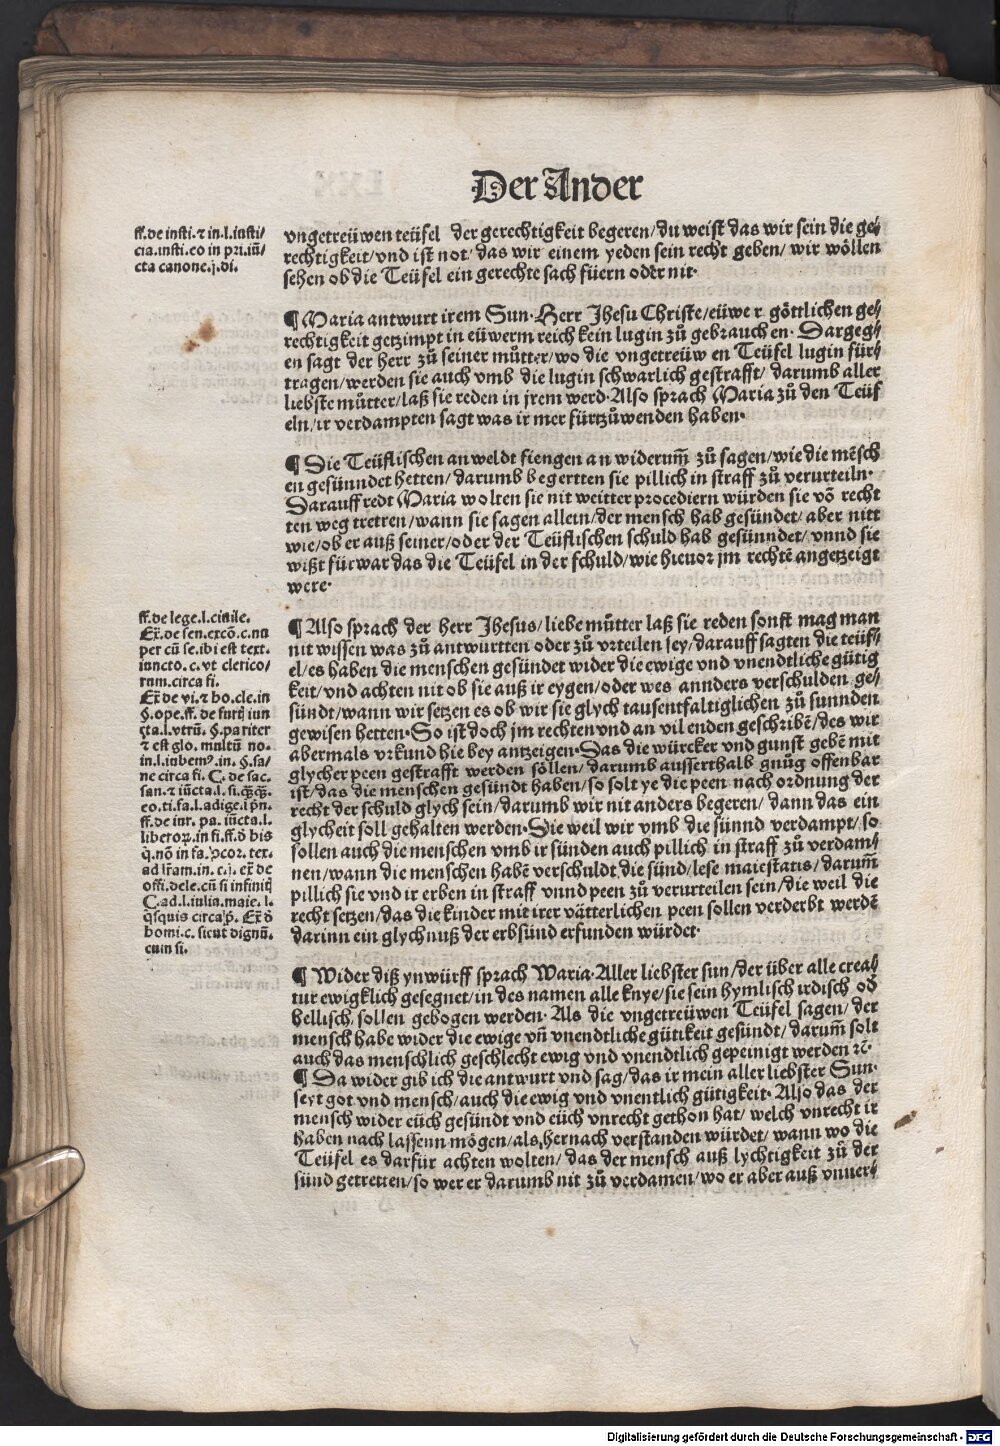 Der Ander
ff. de insti. ⁊ in. l. insti/
cia. insti. eo in pri. iū/
cta canone. j. di.
vngetreüwen teüfel der gerechtigkeit begeren/du weist das wir sein die ge/
rechtigkeit/vnd ist not/das wir einem yeden sein recht geben/wir wöllen
sehen ob die Teüfel ein gerechte sach füern oder nit·
¶ Maria antwurt irem Sun· Herr Jhesu Christe/eüwer göttlichen ge/
rechtigkeit getzimpt in eüwerm reich kein lugin zů gebrauchen· Dargeg/
en sagt der herr zů seiner můtter/wo die vngetreüwen Teüfel lugin für/
tragen/werden sie auch vmb die lugin schwarlich gestrafft/darumb aller
liebste můtter/laß sie reden in jrem werd· Also sprach Maria zů den Teüf
eln/ir verdampten sagt was ir mer fürtzůwenden haben·
¶ Die Teüflischen anweldt fiengen an widerum̄ zů sagen/wie die mēsch
en gesünndet hetten/darumb begertten sie pillich in straff zů verurteiln·
Darauff redt Maria wolten sie nit weitter procediern würden sie vō recht
ten weg tretren/wann sie sagen allein/der mensch hab gesündet/aber nitt
wie/ob er auß seiner/oder der Teüflischen schuld hab gesünndet/vnnd sie
wißt fürwar das die Teüfel in der schuld/wie hieuor jm rechtē angetzeigt
were·
ff. de lege. l. ciuile.
Ex. de sen. excō. c. nu
per cū se. ibi est text.
iuncto. c. vt clerico/
rum. circa fi.
Ex̄ de vi. ⁊ ho. cle. in
§. ope. ff. de furt̄ iun
cta. l. vtrū. §. pariter
⁊ est glo. multū no.
in. l. iubemꝰ. in. §. sa/
ne circa fi. C. de sac.
san. ⁊ iūcta. l. si. q̄q̄.
eo. ti. fa. l. adige. i p̄n.
ff. de iur. pa. iūcta. l.
liberoꝝ. in fi. ff. ð his
q̄. nō in fa. p̄cor. tex.
ad lr̄am. in. c. j. ex̄ de
offi. dele. cū si infiniti
C. ad. l. iulia. maie. l.
q̄squis circa p̄. Ex̄ ð
homi. c. sicut dignū.
cum si.
¶ Also sprach der herr Jhesus/liebe můtter laß sie reden sonst mag man
nit wissen was zů antwurtten oder zů vrteilen sey/darauff sagten die teüf/
el/es haben die menschen gesündet wider die ewige vnd vnendtliche gütig
keit/vnd achten nit ob sie auß ir eygen/oder wes annders verschulden ge/
sündt/wann wir setzen es ob wir sie glych tausentfaltiglichen zů sunnden
gewisen hetten· So ist doch jm rechten vnd an vil enden geschribē/des wir
abermals vrkund hie bey antzeigen· Das die würcker vnd gunst gebē mit
glycher peen gestrafft werden söllen/darumb ausserthalb gnůg offenbar
ist/das die menschen gesündt haben/so solt ye die peen nach ordnung der
recht der schuld glych sein/darumb wir nit anders begeren/dann das ein
glycheit soll gehalten werden· Die weil wir vmb die sünnd verdampt/so
sollen auch die menschen vmb ir sünden auch pillich in straff zů verdam/
nen/wann die menschen habē verschuldt die sünd/lese maiestatis/darum̄
pillich sie vnd ir erben in straff vnnd peen zů verurteilen sein/die weil die
recht setzen/das die kinder mit irer vätterlichen peen sollen verderbt werdē
darinn ein glychnuß der erbsünd erfunden würdet·
¶ Wider diß ynwürff sprach Maria· Aller liebster sun/der über alle crea/
tur ewigklich gesegnet/in des namen alle knye/sie sein hymlisch irdisch oð
hellisch/sollen gebogen werden· Als die vngetreüwen Teüfel sagen/der
mensch habe wider die ewige vn̄ vnendtliche gütikeit gesündt/darum̄ solt
auch das menschlich geschlecht ewig vnd vnendtlich gepeinigt werden ⁊c̄·
¶ Da wider gib ich die antwurt vnd sag/das ir mein aller liebster Sun·
seyt got vnd mensch/auch die ewig vnd vnentlich gütigkeit· Also das der
mensch wider eüch gesündt vnd eüch vnrecht gethon hat/welch vnrecht ir
haben nach lassenn mögen/als hernach verstanden würdet/wann wo die
Teüfel es darfür achten wolten/das der mensch auß lychtigkeit zů der
sünd getretten/so wer er darumb nit zů verdamen/wo er aber auß vnuer/
Digitalisierung gefördert durch die Deutsche Forschungsgemeinschaft - DFG